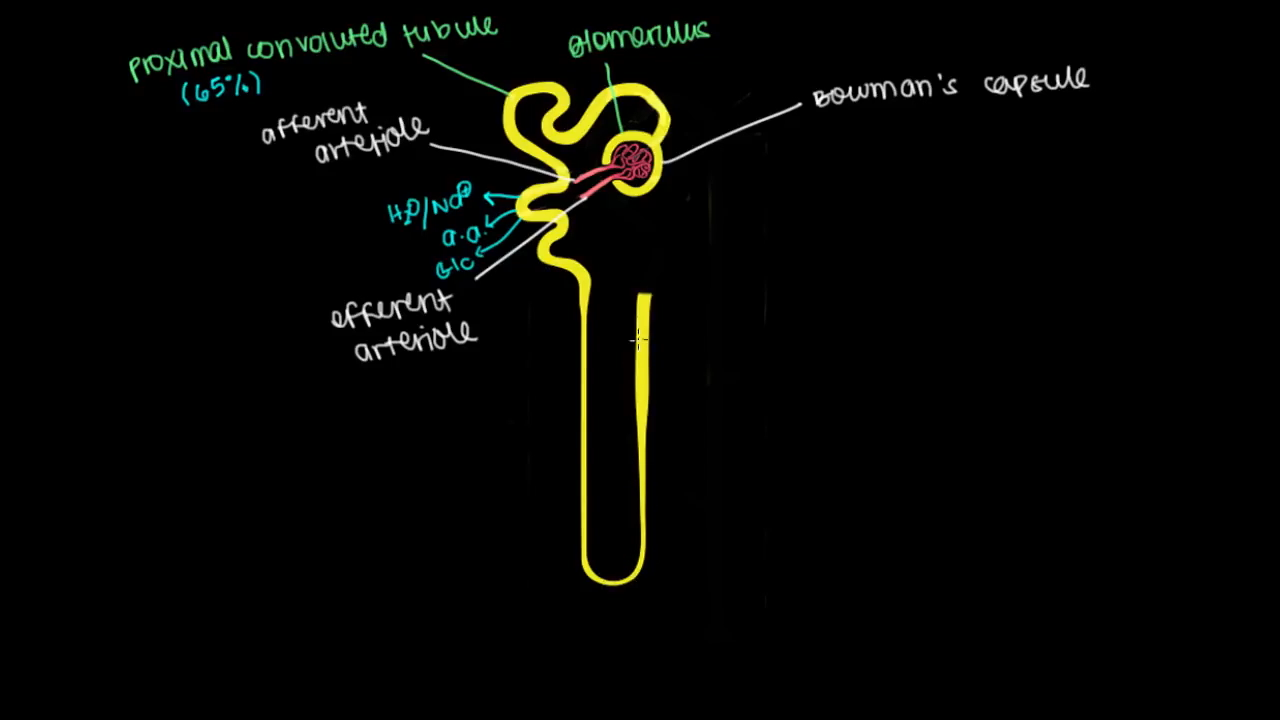 proximal convoluted tubule
(65%)
glomerulus
Bowman's capsule
afferent
arteriole
H2O/Na+
a.a.
Glc
efferent
arteriole